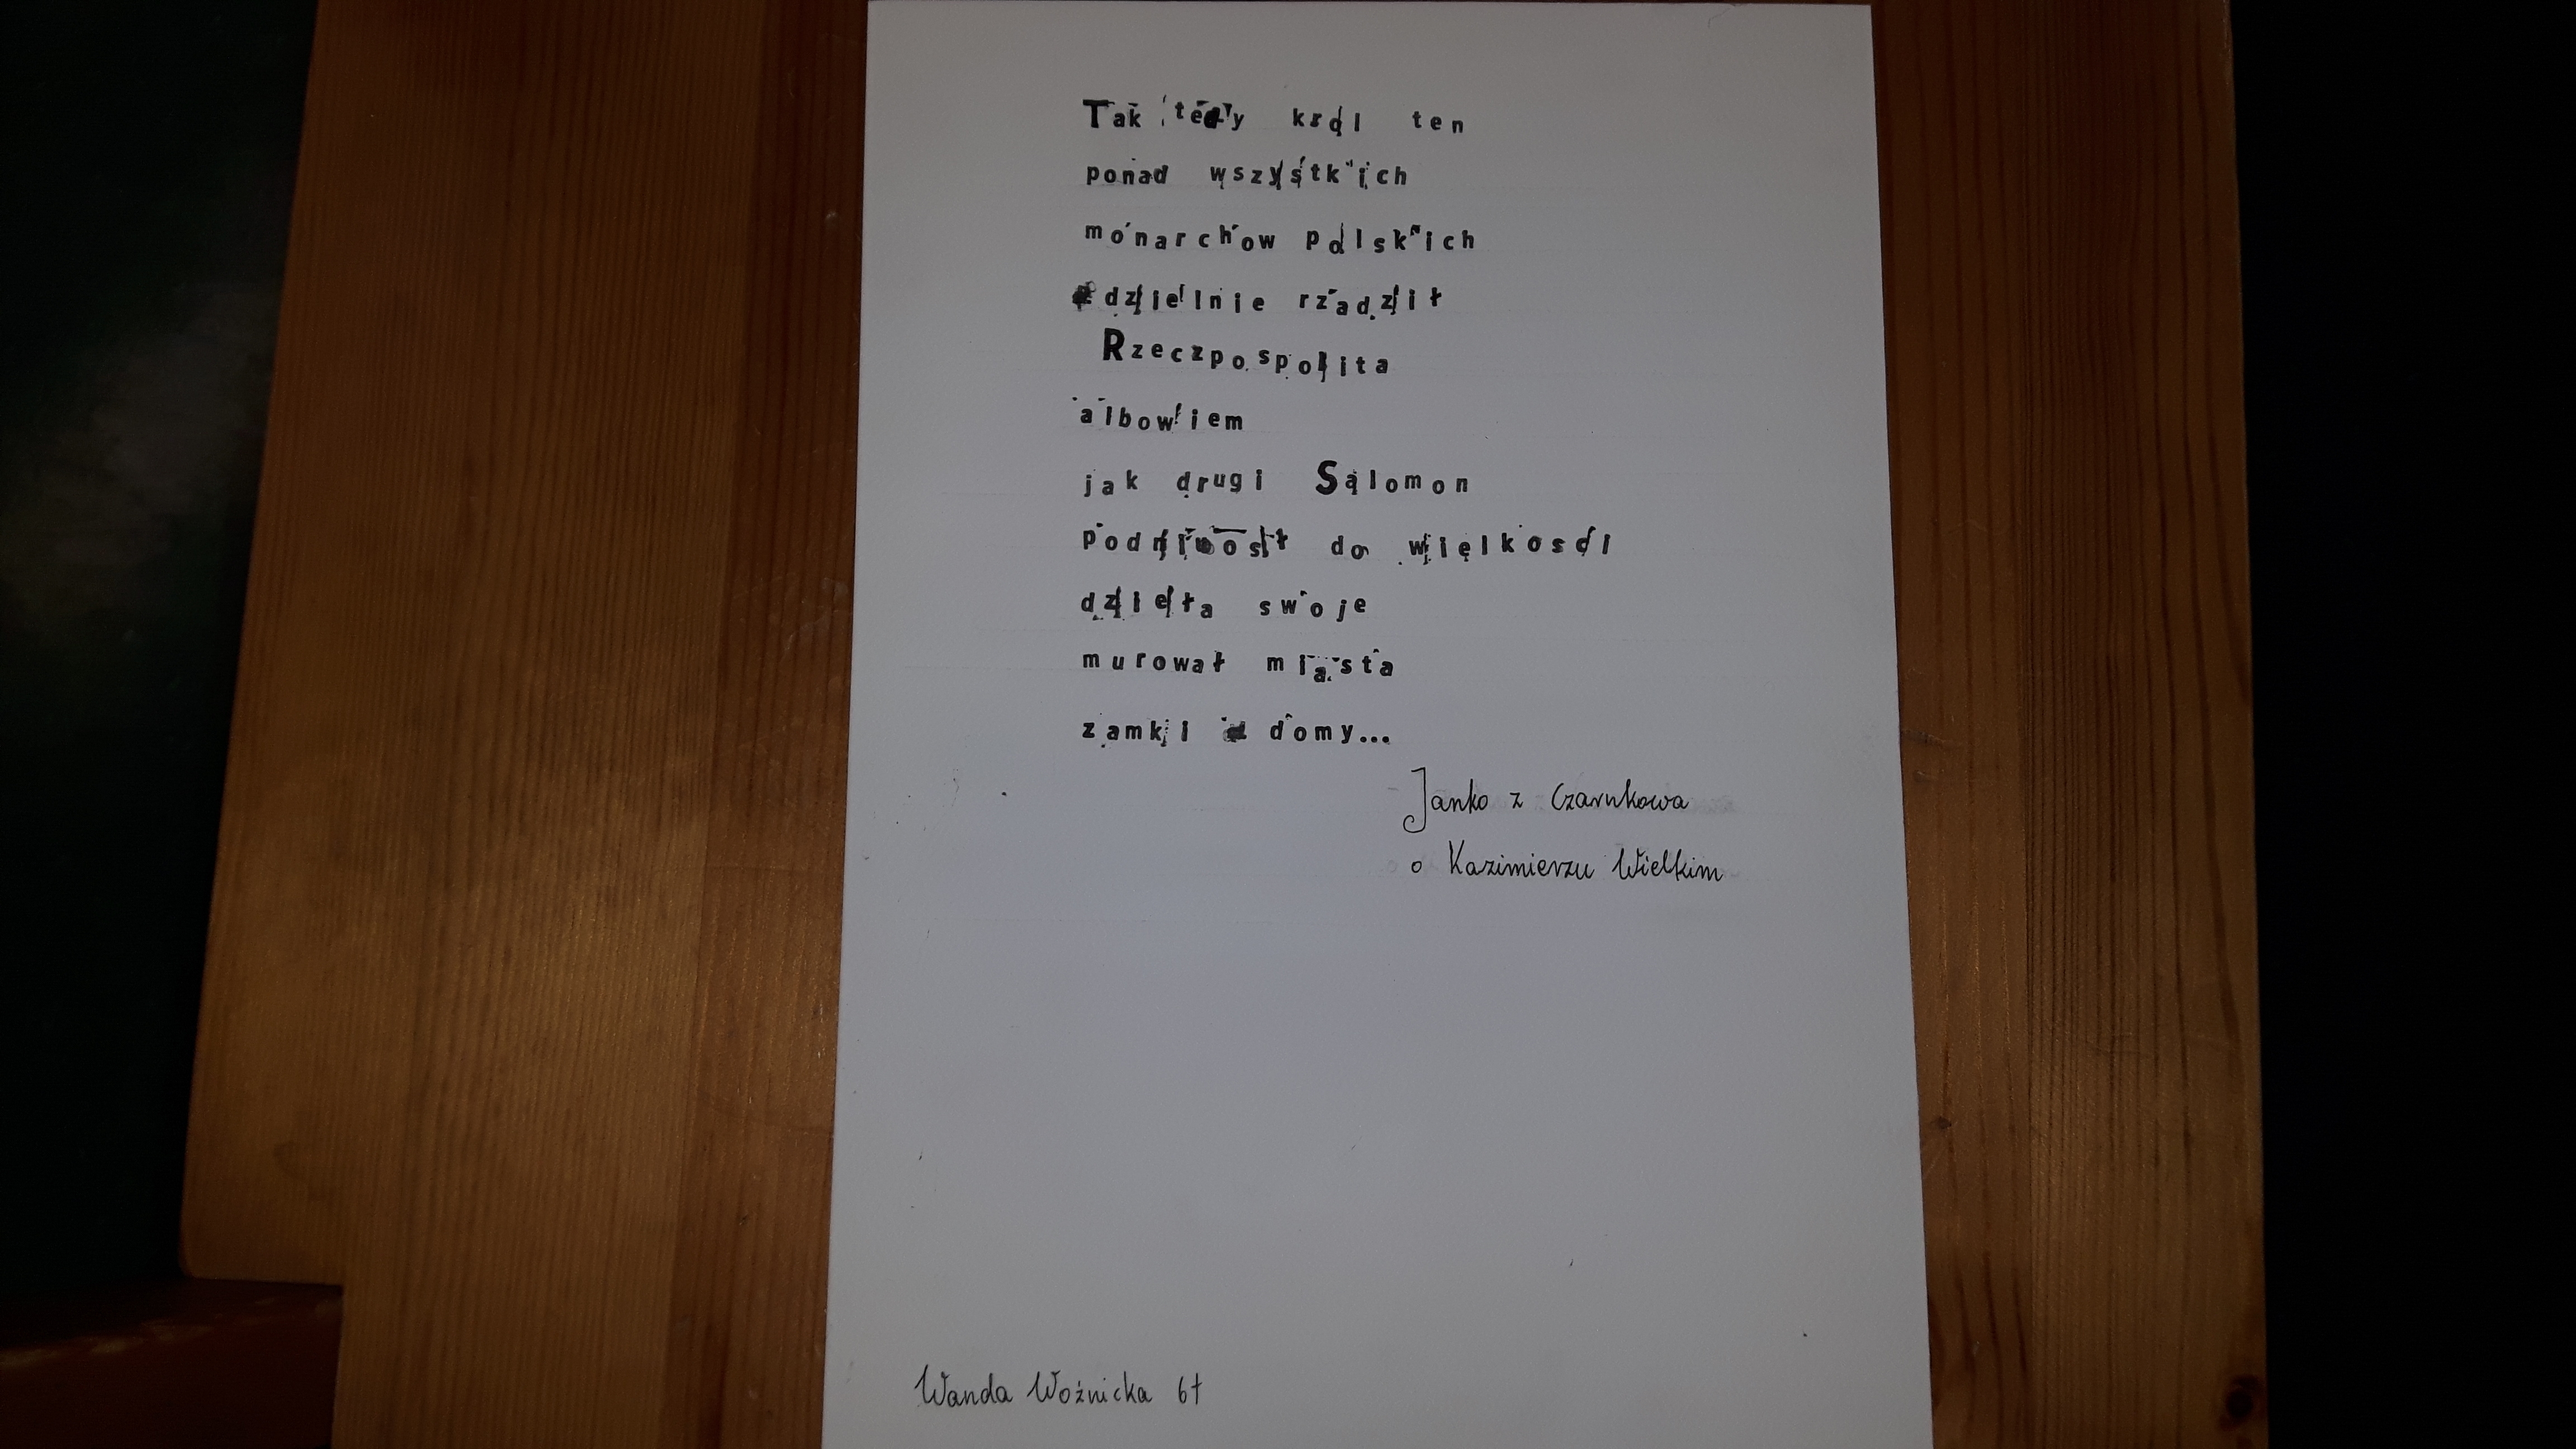 Tak tedy krol ten
ponad wszystkich
monarchow polskich
dzielnie rzadził
Rzeczpospolita
albowiem
jak drugi Salomon
podniosł do wielkosci
dzieła swoje
murował miasta
zamki domy...
Janko z Czarnkowa
o Kazimierzu Wielkim
Wanda Woźnicka 6f